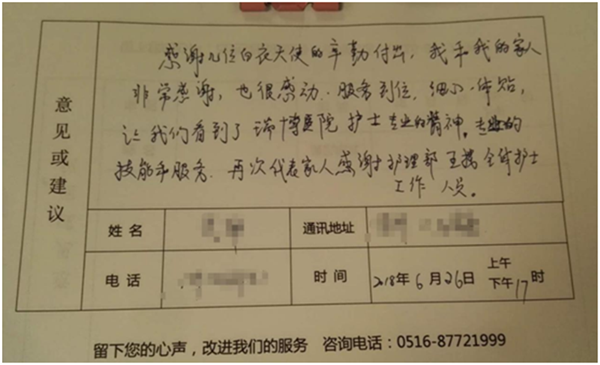 意见或建议
感谢几位白衣天使的辛勤付出，我和我的家人
非常感谢，也很感动．服务到位，细心、体贴，
让我们看到了瑞博医院护士专业的精神，专业的
技能和服务．再次代表家人感谢护理部 全体护士
工作人员。
姓名 通讯地址
电话 时间 2018年6月26日 上午 下午17时
留下您的心声，改进我们的服务 咨询电话：0516-87721999